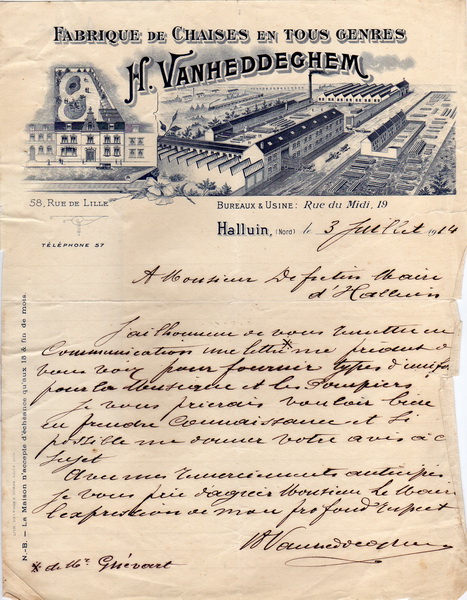 Fabrique de Chaises en tous genres
H. Vanheddeghem
58, Rue de Lille
Téléphone 57
Bureaux & Usine: Rue du Midi, 19
Halluin, (Nord) le 3 Juillet 1914
A Monsieur Defretin Maire
d'Halluin
J'ai l'honneur de vous remettre en
Communication une lettre * me priant de
vous voir pour fournir types d'unif
pour la Musique et les Pompiers
Je vous prierais vouloir bien
en prendre connaissance et si
possible me donner votre avis à ce
sujet
Avec mes remerciements anticipés
je vous prie d'agréer Monsieur le Maire
l'expression de mon profond respect
H Vanheddeghem
* de Mr Griévart
N.-B. — La Maison n'accepte d'échéance qu'aux 15 & fin de mois